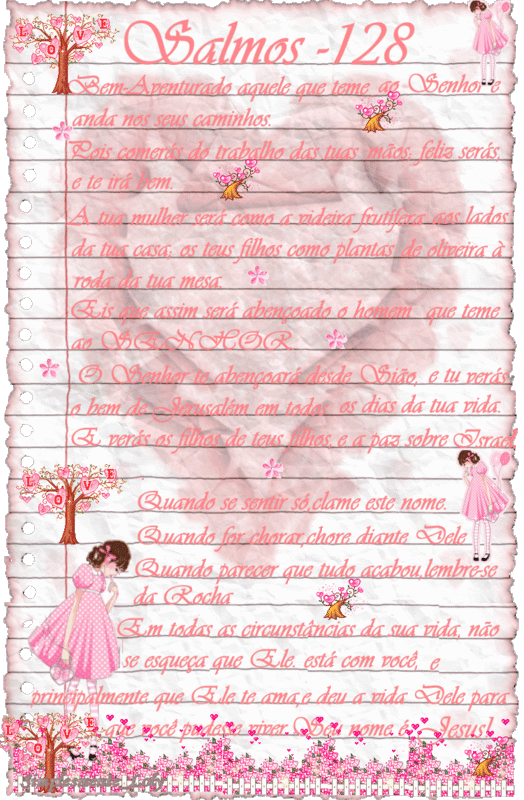 L O V E
Salmos -128
Bem-Aventurado aquele que teme ao Senhor e
anda nos seus caminhos.
Pois comerás do trabalho das tuas mãos, feliz serás,
e te irá bem.
A tua mulher será como a videira frutífera aos lados
da tua casa: os teus filhos como plantas de oliveira à
roda da tua mesa.
Eis que assim será abençoado o homem que teme
ao SENHOR.
O Senhor te abençoará desde Sião, e tu verás
o bem de Jerusalém em todos os dias da tua vida.
E, verás os filhos de teus filhos, e a paz sobre Israel
L O V E
Quando se sentir só,clame este nome.
Quando for chorar,chore diante Dele
Quando parecer que tudo acabou,lembre-se
da Rocha
Em todas as circunstâncias da sua vida, não
se esqueça que Ele, está com você, e
principalmente que Ele te ama,e deu a vida Dele para
que você pudesse viver. Seu nome é, Jesus!
L O V E